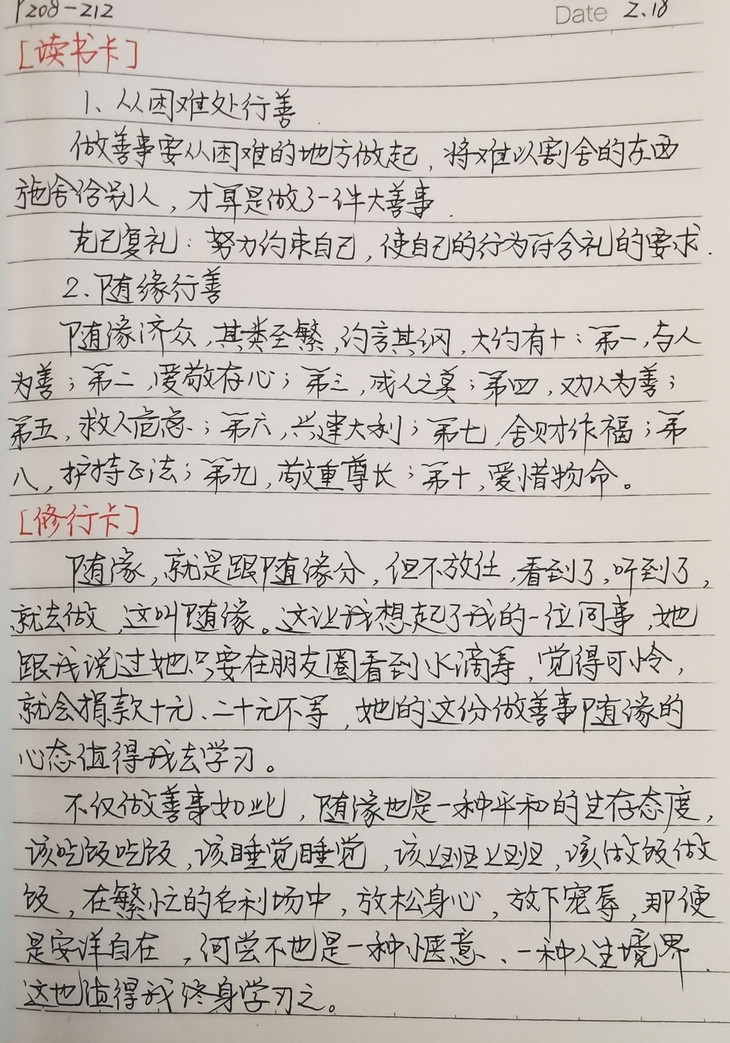 P208-212 Date 2.18
[读书卡]
1、从困难处行善.
做善事要从困难的地方做起,将难以割舍的东西
施舍给别人,才算是做了一件大善事.
克己复礼:努力约束自己,使自己的行为符合礼的要求.
2.随缘行善
随缘济众,其类至繁,约言其纲,大约有十:第一,与人
为善;第二,爱敬存心;第三,成人之美;第四,劝人为善;
第五,救人危急;第六,兴建大利;第七,舍财作福;第
八,护持正法;第九,敬重尊长;第十,爱惜物命。
[修行卡]
随缘,就是跟随缘分,但不放任,看到了,听到了,
就去做,这叫随缘。这让我想起了我的一位同事,她
跟我说过她只要在朋友圈看到水滴筹,觉得可怜,
就会捐款十元、二十元不等,她的这份做善事随缘的
心态值得我去学习。
不仅做善事如此,随缘也是一种平和的生存态度,
该吃饭吃饭,该睡觉睡觉,该上班上班,该做饭做
饭,在繁忙的名利场中,放松身心,放下宠辱,那便
是安详自在,何尝不也是一种惬意、一种人生境界.
这也值得我终身学习之。